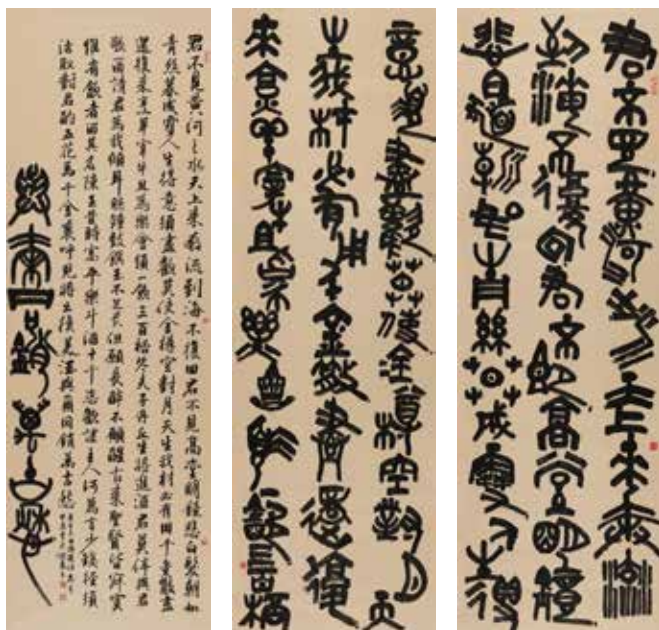 君不見黃河之水天上來奔流
到海不復回君不見高堂明鏡
悲白髮朝如青絲暮成雪人生得
意須盡歡莫使金尊空對月天
生我材必有用千金散盡還復
來烹羊宰牛且為樂會須一飲三百杯
君不見黃河之水天上來奔流到海不復回君不見高堂明鏡悲白髮朝如
青絲暮成雪人生得意須盡歡莫使金樽空對月天生我材必有用千金散盡
還復來烹羊宰牛且為樂會須一飲三百杯岑夫子丹丘生將進酒君莫停與君
歌一曲請君為我傾耳聽鐘鼓饌玉不足貴但願長醉不願醒古來聖賢皆寂寞
惟有飲者留其名陳王昔時宴平樂斗酒十千恣歡謔主人何為言少錢徑須
沽取對君酌五花馬千金裘呼兒將出換美酒與爾同銷萬古愁
與爾同銷萬古愁